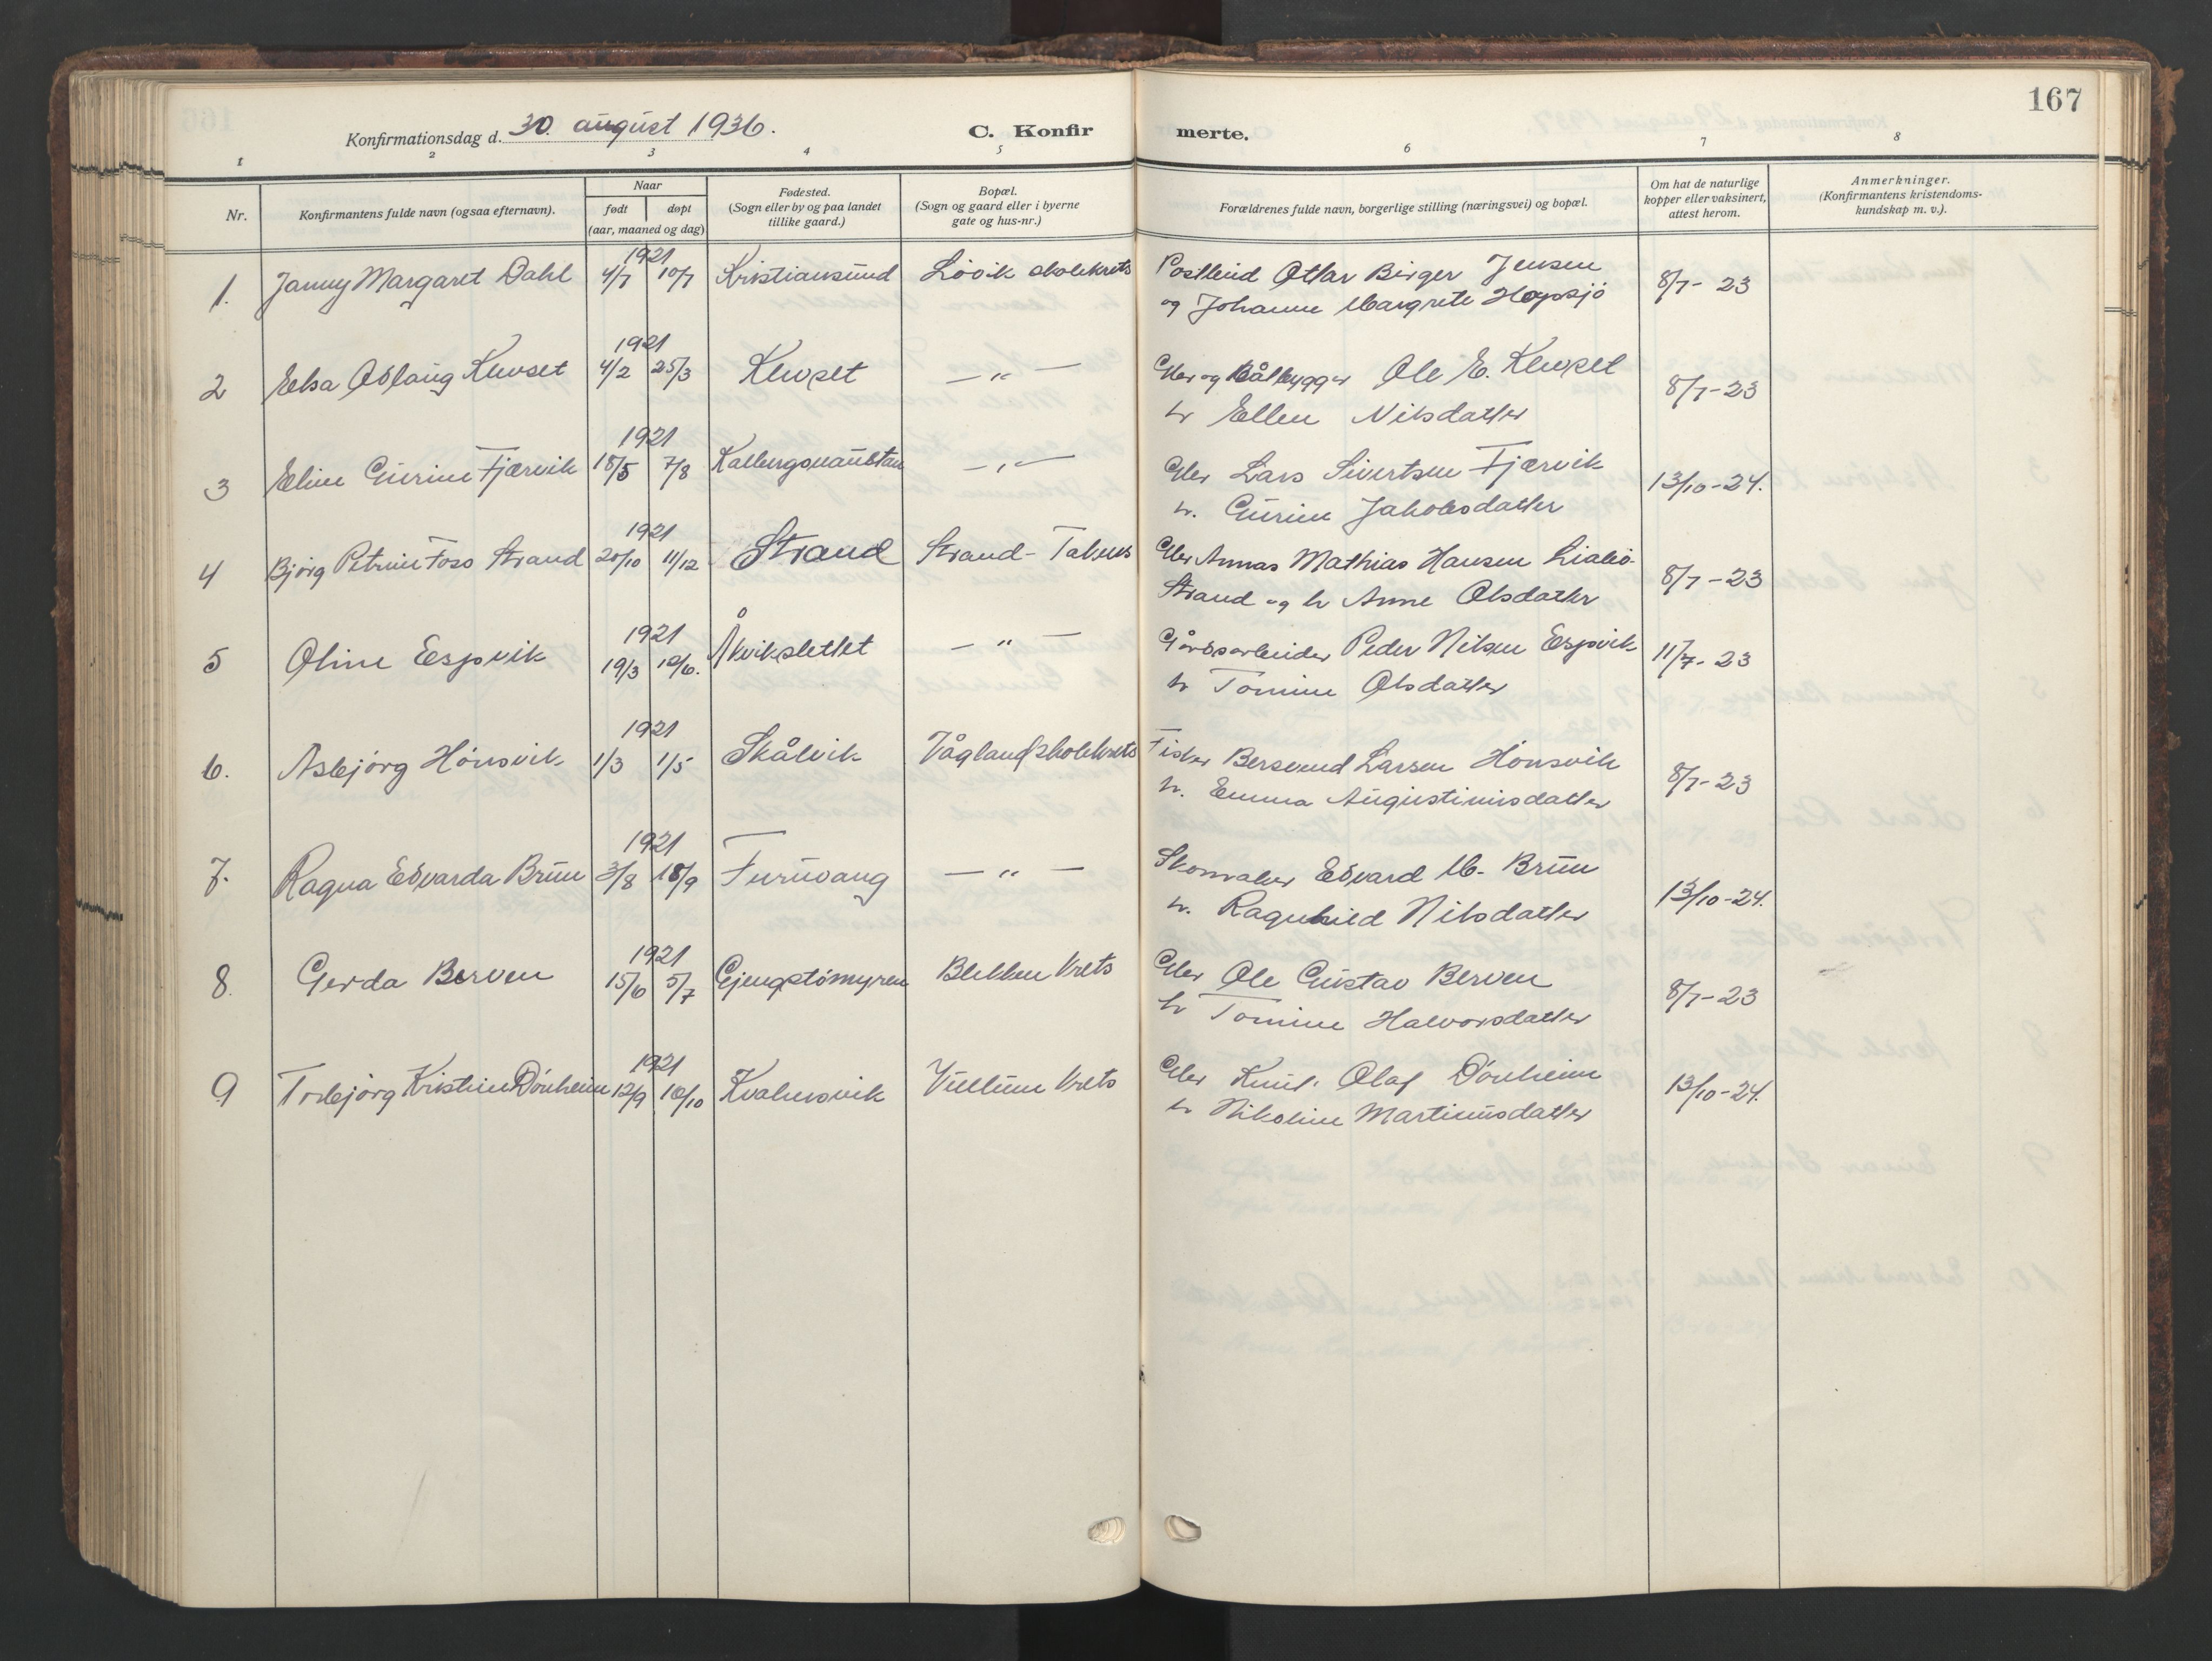 167
Konfirmationsdag d. 30. august 1936.
C. Konfir
merte.
1 2 3 4 5 6 7 8
Nr.
Konfirmantens fulde navn (ogsaa efternavn).
Naar
født
døpt
(aar, maaned og dag)
Fødested.
(Sogn eller by og paa landet
tillike gaard.)
Bopæl.
(Sogn og gaard eller i byerne
gate og hus-nr.)
Forældrenes fulde navn, borgerlige stilling (næringsvei) og bopæl.
Om hat de naturlige
kopper eller vaksinert,
attest herom.
Anmerkninger.
(Konfirmantens kristendoms-
kundskap m. v.).
1921
1. Janny Margaret Dahl 4/7 10/7 Kristiansund Lövik skolekrets Ottar Birger Jensen 8/7-23
og Johanne Margrete Hopsjö
1921
2 Elsa Oddlaug Klevset 4/2 25/3 Klevset — " — Gbr og Båtbygger Ole E. Klevset 8/7-23
h. Ellen Nilsdatter
1921
3 Eline Gurine Fjærvik 18/5 7/8 — " — Gbr Lars Sivertsen Fjærvik 13/10-24.
h. Gurine Jakobsdatter
1921
4 Bjørg Petrine Foss Strand 20/10 11/12 Strand Strand- Gbr Annas Mathias Hansen 8/7-23
Strand og h Anne Olsdatter
1921
5 Oline Espvik 19/3 Åkvikslettet — " — Gårdsarbeider Peder Nilsen Espvik 11/7-23
h Tomine Olsdatter
1921
6. Asbjörg Hönsvik 1/3 1/5 Skålvik Vågland skolekrets Fisker Bersvend Larsen Hönsvik 8/7-23
h. Emma Augustinusdatter
1921
7. Ragna Edvarda Brun 3/8 18/9 Furuvang — " — Skomaker Edvard M. Brun 13/10-24.
h. Ragnhild Nilsdatter
1921
8. Gerda Berven 15/6 5/7 Gjengstömyren Blekken krets Gbr Ole Gustav Berven 8/7-23
h Tomine Halvorsdatter
1921
9 Torbjörg Kristine Dönheim 12/9 Kvalnesvik Vullum krets Gbr Knut Olaf Dönheim 13/10-24.
h Nikoline Martinusdatter